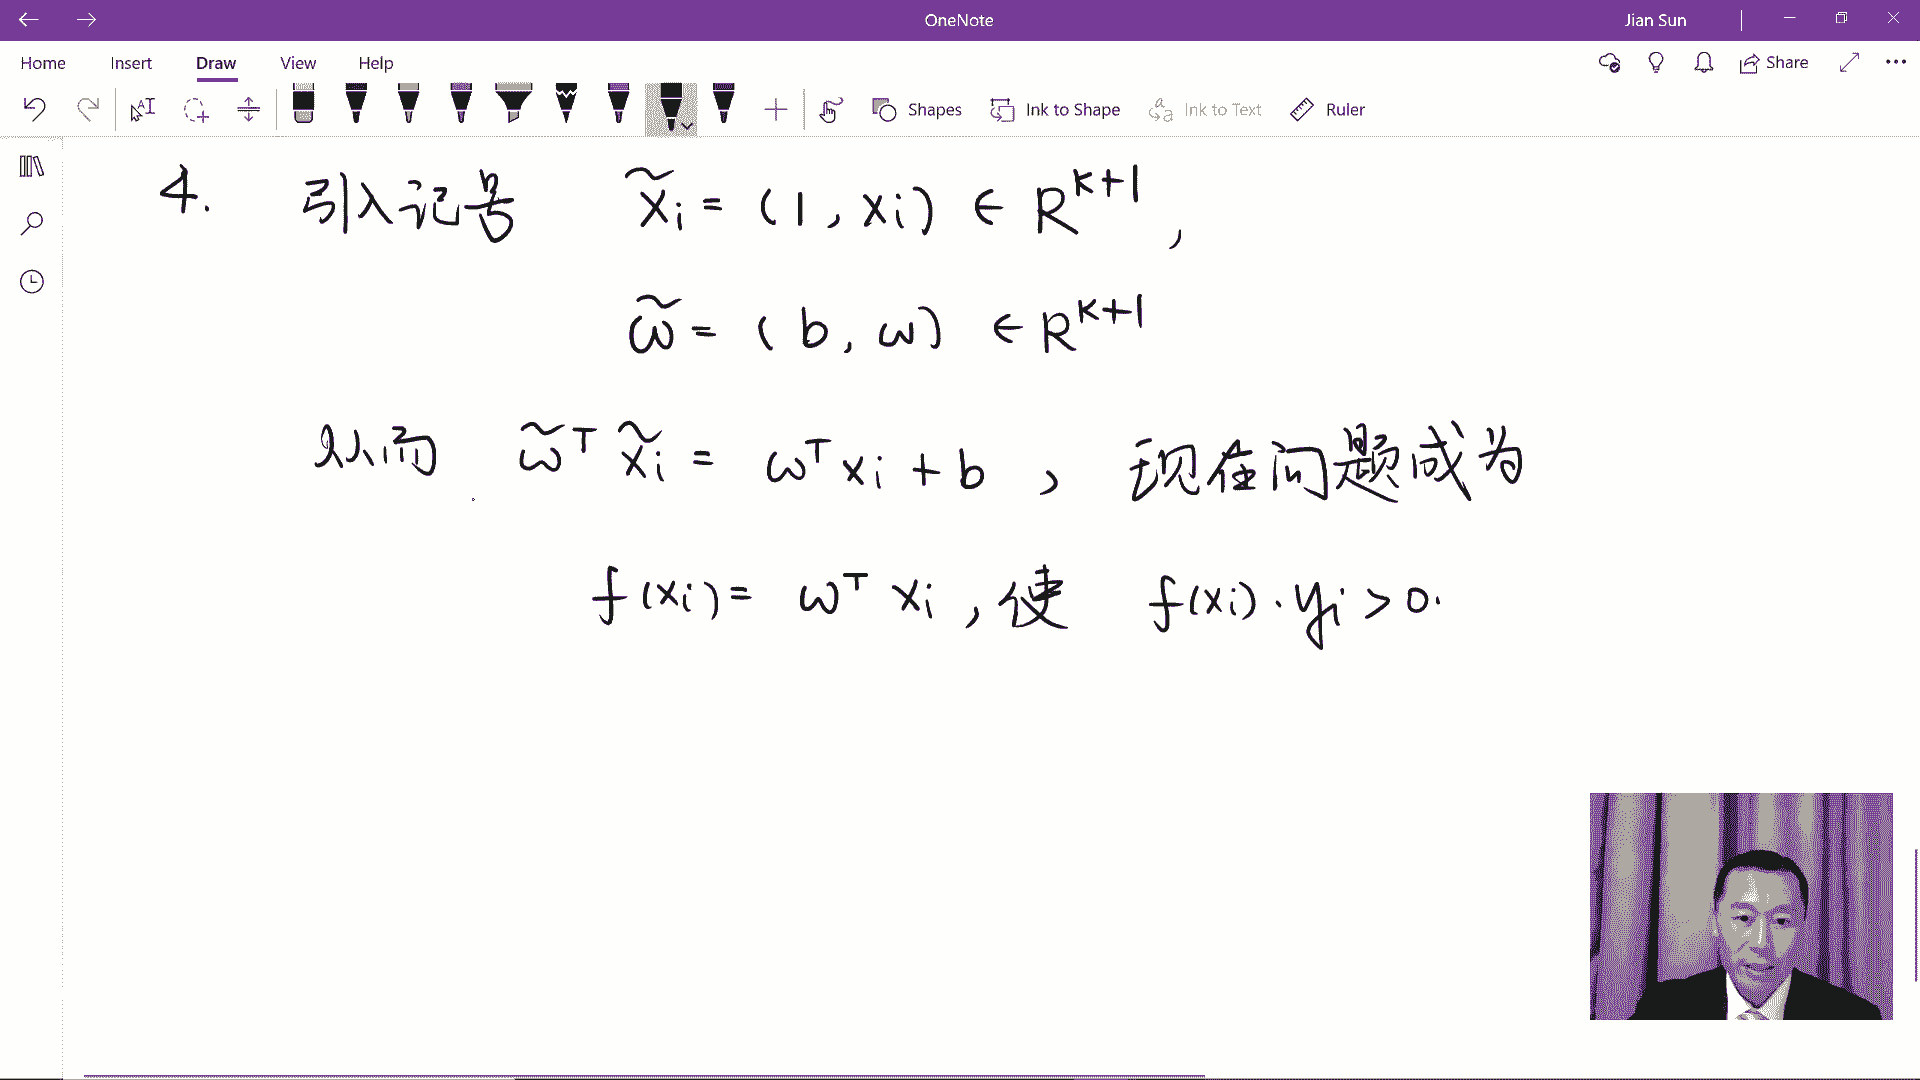 OneNote
Jian Sun
Home Insert Draw View Help
Share
Shapes Ink to Shape Ink to Text Ruler
4. 引入记号 x̃i = (1, xi) ∈ R^{k+1},
ω̃ = (b, ω) ∈ R^{k+1}
从而 ω̃^T x̃i = ω^T xi + b, 现在问题成为
f(xi) = ω^T xi, 使 f(xi)·yi > 0.